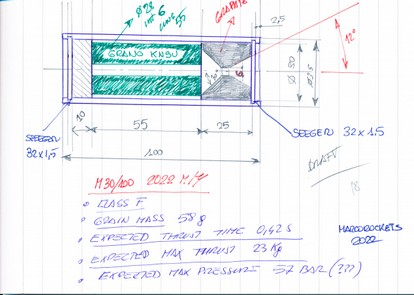 Ø 28
INT 6
LUNG 55
GRAPHITE
2,5
A
12°
GRANO KNSU
Ø 30
SEEGER
32x1,5
10
55
25
100
SEEGER 32x1.5
DRAFT
M30/100 2022 M.M
CLASS F
GRAIN MASS 58g
EXPECTED THRUST TIME 0,42 S
EXPECTED MAX THRUST 23 Kg
EXPECTED MAX PRESSURE 57 BAR (???)
MARCOROCKETS
2022